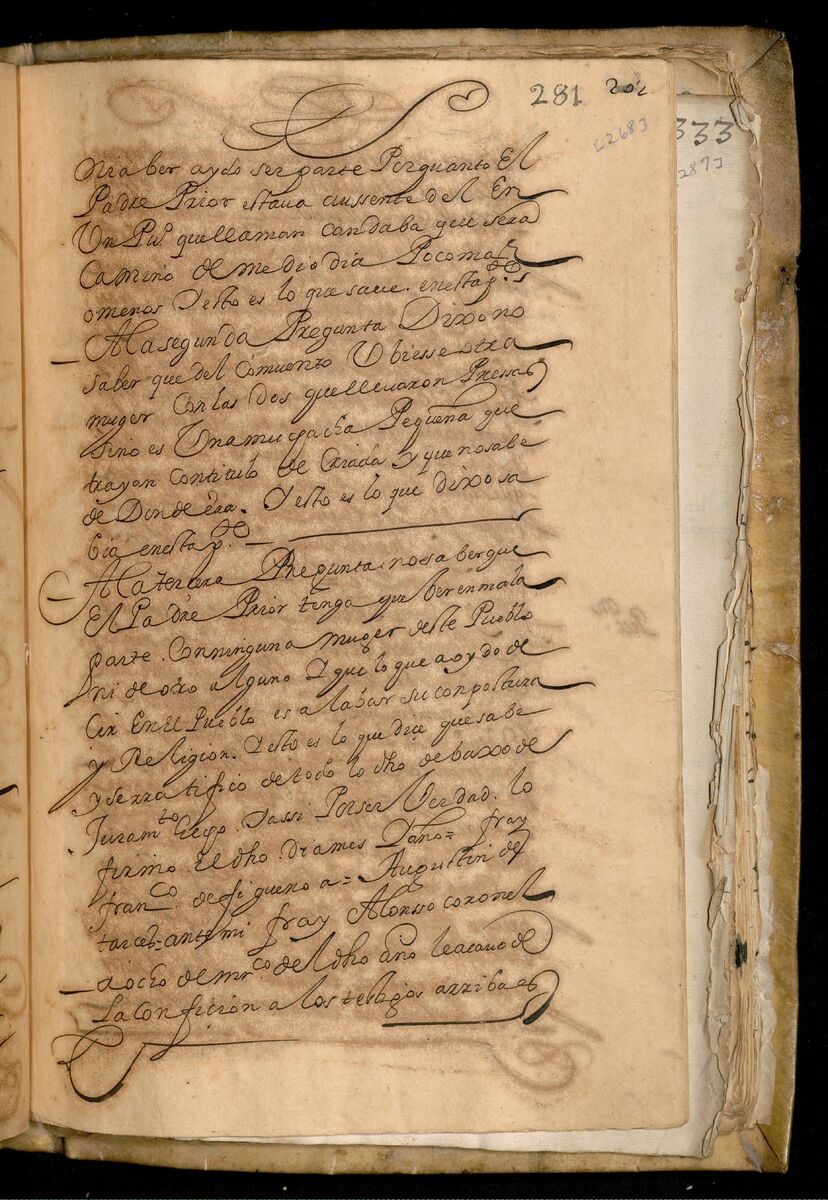 281 202
[268]
333
287]
Ni aber aydo ser parte Porquanto El
Padre Prior estaua aussente del En
Un Pu.º quellaman candaba que sera
Camino de mediodia Pocomas
omenos Y esto es lo que saue. enesta p.ta
A la segunda Pregunta Dixo no
saber que del Comuento Ubiesse otra
muger Con las dos quelleuaron Pressas
sino es Una muchacha Pequeña que
trayan contitulo de Criada y que nosabe
de Donde era. Y esto es lo que dixo sa
bia enesta p.ta
A la tercera Pregunta. nosaber que
El Padre Prior tenga que ber en mala
parte. Conninguna muger deste Pueblo
ni de otro alguno Y que lo que a oydo de
Cir En el Pueblo es alabar su conpostura
y Religion. Y esto es lo que dice quesabe
y serratifico de todo lo dho debaxo de
Juram.to Y assi Por ser Verdad. lo
firmo. el dho. dia mes Y año= fray
fran.co de figueroa= Augustin de
ante mi fray Alonsso coronel
a ocho de mr.co del dho año leacauo de
La Confiçion a los testigos arriba